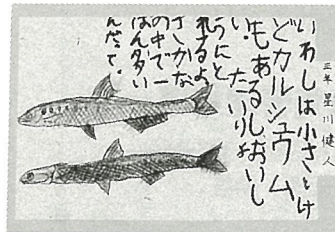 星川健人
いわしは小さいけ
どカルシュウム
もあるしおいし
い。たいりょ
うにと
れるよ
さかな
の中で一
ばん多い
んだって。